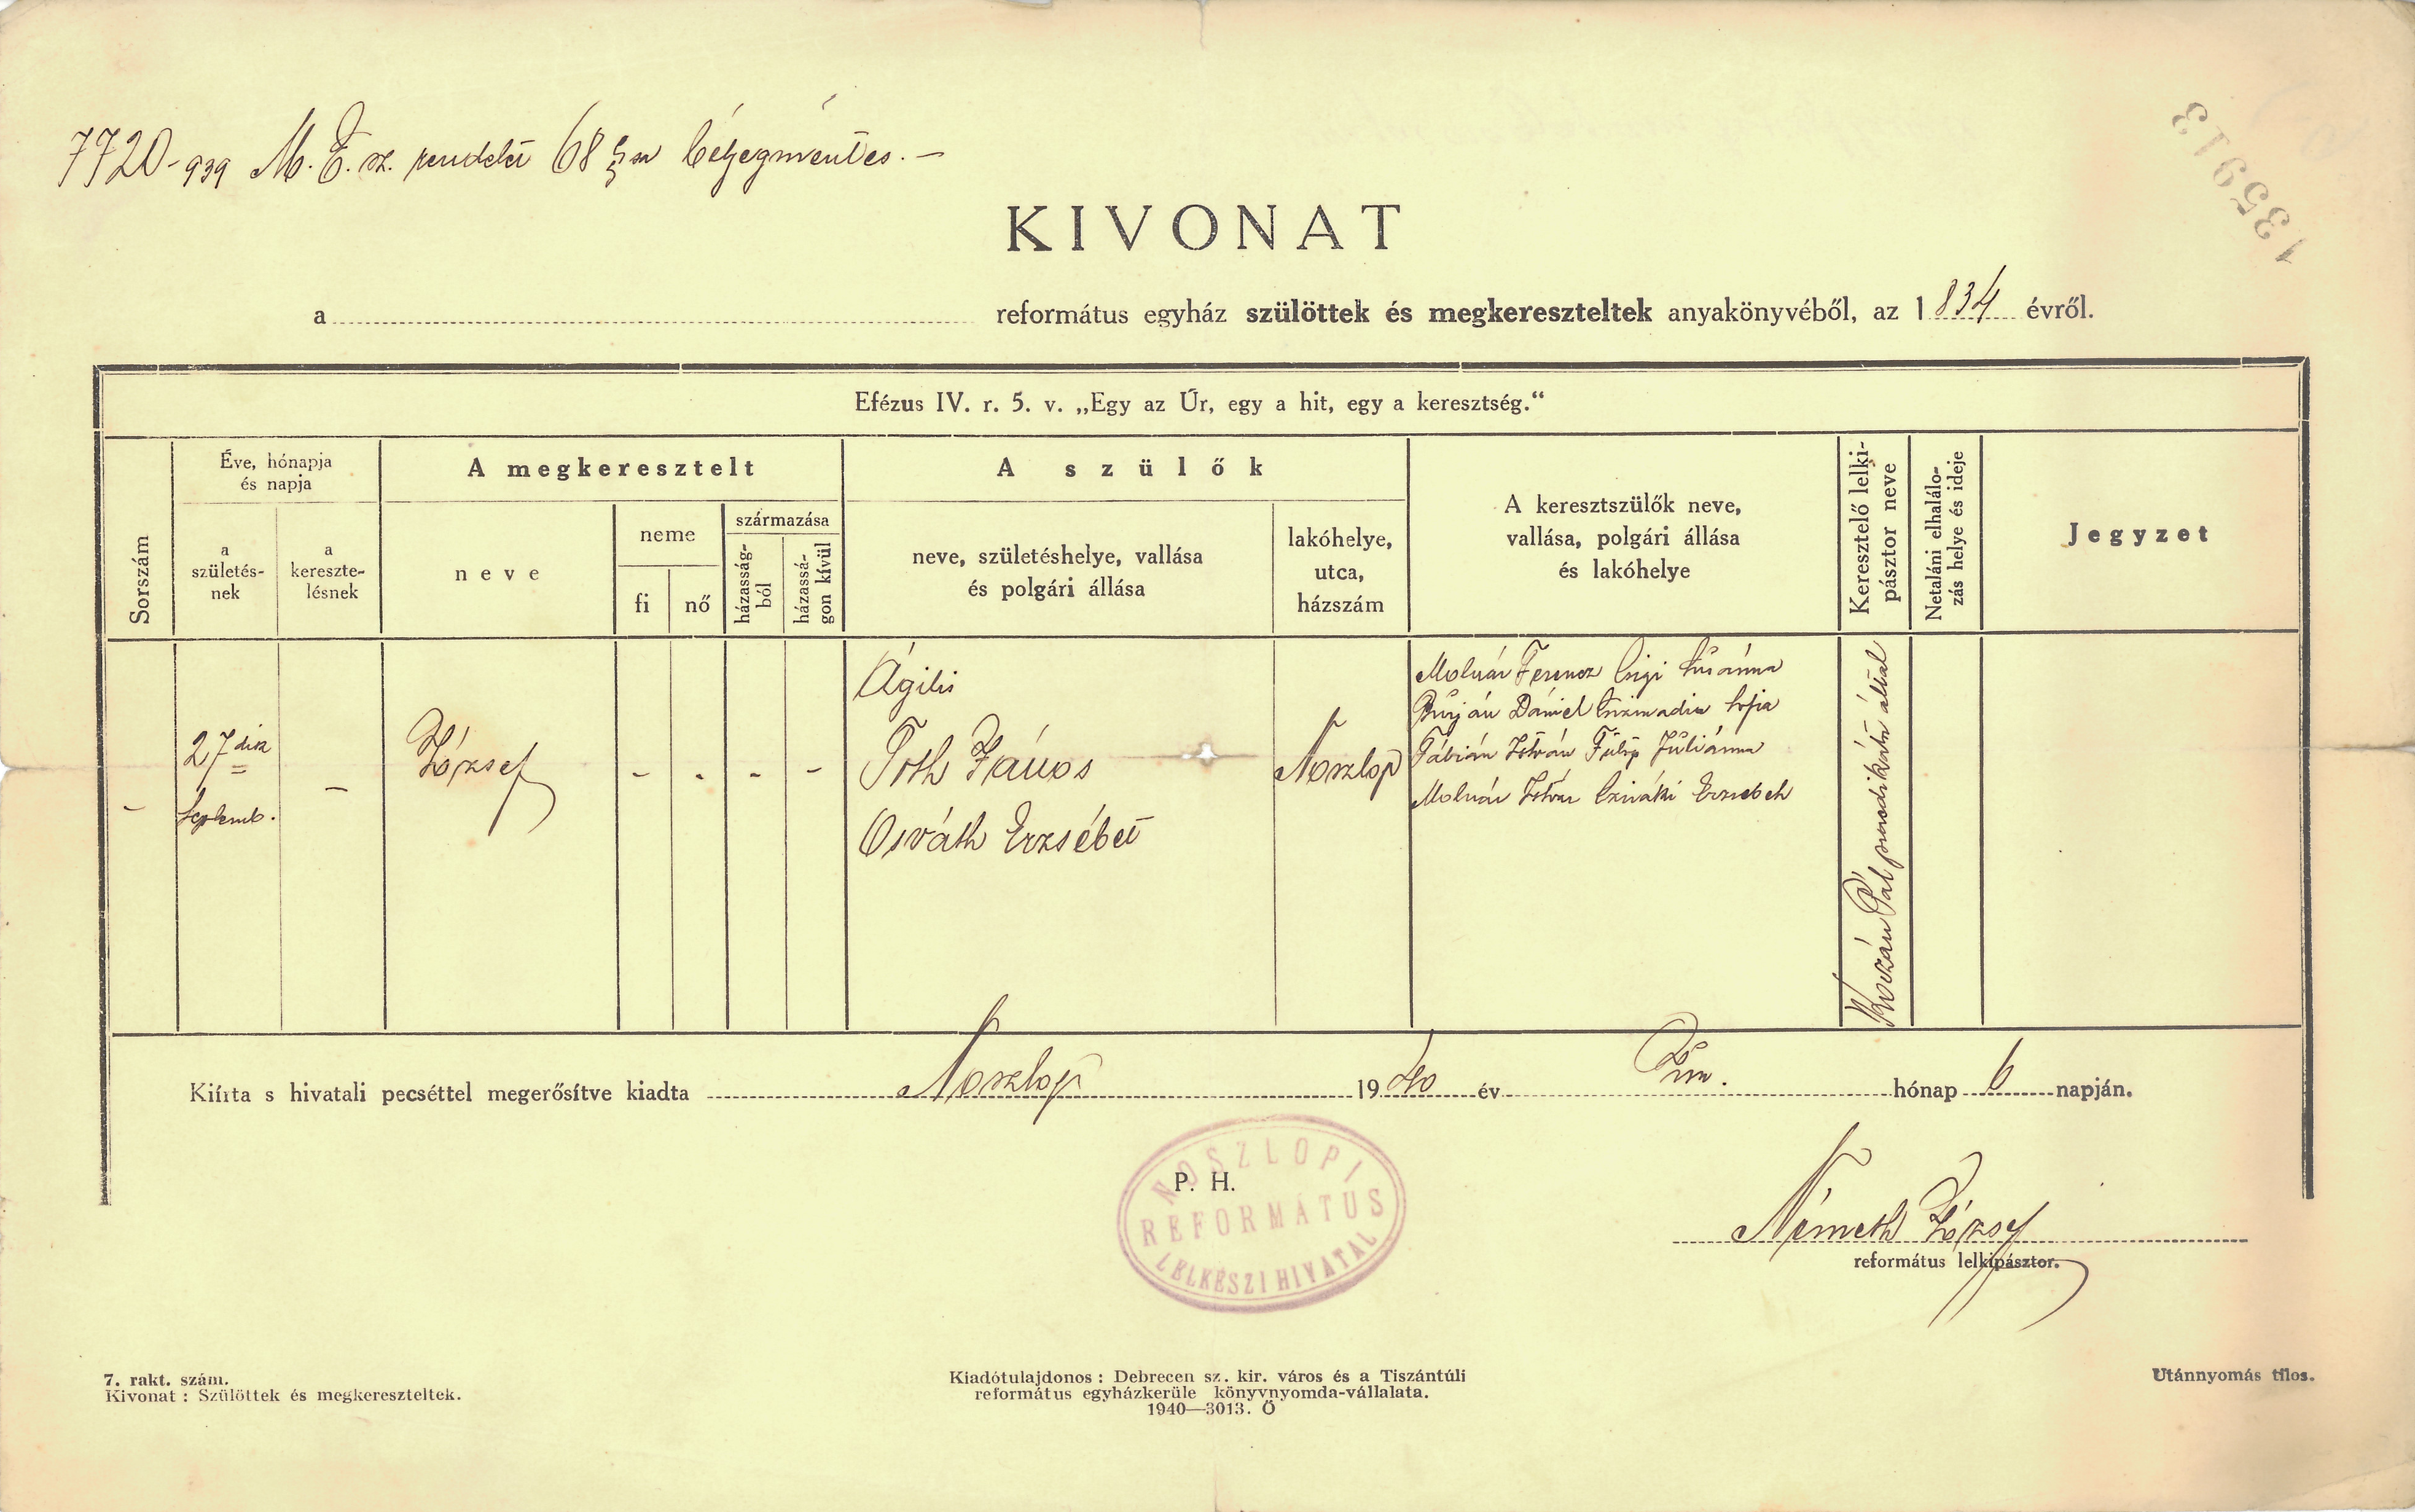 7720-939 M. E. sz. rendelet 68 §sa bélyegmentes. –
135913
KIVONAT
a református egyház szülöttek és megkereszteltek anyakönyvéből, az 1834 évről.
Efézus IV. r. 5. v. „Egy az Úr, egy a hit, egy a keresztség.“
Sorszám
Éve, hónapja
és napja
a
születés-
nek
a
kereszte-
lésnek
A megkeresztelt
neve
neme
fi
nő
származása
házasság-
ból
házassá-
gon kívül
A szülők
neve, születéshelye, vallása
és polgári állása
lakóhelye,
utca,
házszám
A keresztszülők neve,
vallása, polgári állása
és lakóhelye
Keresztelő lelki-
pásztor neve
Netaláni elhaláló-
zás helye és ideje
Jegyzet
–
27dik
Septemb.
–
József
- - - -
Ágilis
Tóth János
Osváth Erzsébet
Noszlop
Molnár Ferencz Czigi Susánna
Burján Dániel Csizmadia Sofia
Fábián István Fülöp Juliánna
Molnár István Cziráki Erzsebeth
Pál által
Kiírta s hivatali pecséttel megerősítve kiadta Noszlop 1940 év Jun. hónap 6 napján.
P. H.
NOSZLOPI
REFORMÁTUS
LELKÉSZI HIVATAL
Németh József
református lelkipásztor.
7. rakt. szám.
Kivonat : Szülöttek és megkereszteltek.
Kiadótulajdonos : Debrecen sz. kir. város és a Tiszántúli
református egyházkerüle könyvnyomda-vállalata.
1940—3013. Ő
Utánnyomás tilos.